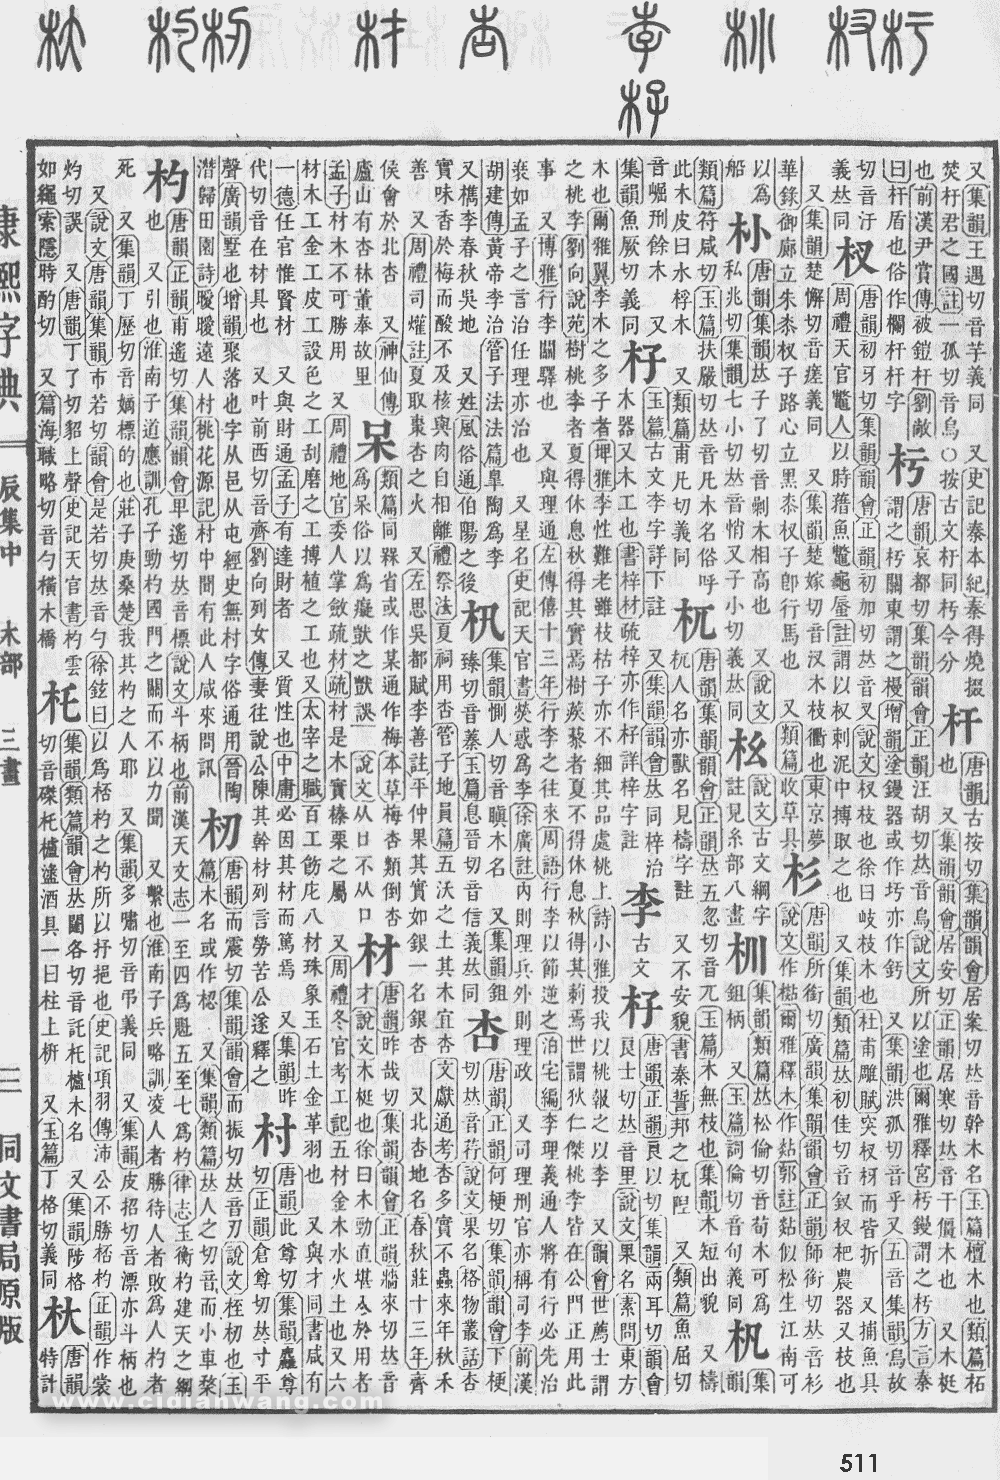 又集韻王遇切音芋義同　又史記秦本紀秦得燒掇
焚杅君之國註一孤切音烏〇按古文杅同杇今分
杆
唐韻古按切集韻韻會居案切𠀤音幹木名玉篇檀木也類篇柘
也　又集韻韻會居安切正韻居寒切𠀤音干僵木也　又木梃
也前漢尹賞傳被鎧杆劉敞
曰杆盾也俗作欄杆杆字
杇
唐韻哀都切集韻韻會正韻汪胡切𠀤音烏說文所以塗也爾雅釋宮杇鏝謂之杇方言秦
謂之杇關東謂之槾增韻塗鏝器或作圬亦作釫　又集韻洪孤切音乎又五音集韻烏故
切音汙
義𠀤同
杈
唐韻初牙切集韻韻會正韻初加切𠀤音叉說文杈枝也徐曰岐枝木也杜甫雕賦突杈枒而皆折　又捕魚具
周禮天官鼈人以時簎魚鼈龜蜃註謂以杈刺泥中搏取之也　又集韻類篇𠀤初佳切音釵杈杷農器又枝也
又集韻楚懈切音瘥義同　又集韻楚嫁切音汊木枝衢也東京夢
華錄御廊立朱桼杈子路心立黑桼杈子卽行馬也　又類篇收草具
杉
唐韻所銜切廣韻集韻韻會正韻師銜切𠀤音衫
說文作爾雅釋木作郭註似松生江南可
以為
船
唐韻集韻𠀤子了切音剿木相高也　又說文
私兆切集韻七小切𠀤音悄又子小切義𠀤同
說文古文綱字
註見糸部八畫
杊
集韻類篇𠀤松倫切音荀木可為
鉏柄　又玉篇詞倫切音旬義同
杋
集
韻
類篇符咸切玉篇扶嚴切𠀤音凡木名俗呼
此木皮曰水桴木　又類篇甫凡切義同
杌
唐韻集韻韻會正韻𠀤五忽切音兀玉篇木無枝也集韻木短出貌　又檮
杌人名亦獸名見檮字註　又不安貌書秦誓邦之杌隉　又類篇魚屈切
音崛刖餘木　又
集韻魚厥切義同
杍
玉篇古文李字詳下註　又集韻韻會𠀤同梓治
木器又木工也書梓材疏梓亦作杍詳梓字註
李
古文
杍
唐韻正韻良以切集韻兩耳切韻會
良士切𠀤音里說文果名素問東方
木也爾雅翼李木之多子者埤雅李性難老雖枝枯子亦不細其品處桃上詩小雅投我以桃報之以李　又韻會世薦士謂
之桃李劉向說苑樹桃李者夏得休息秋得其實焉樹蒺藜者夏不得休息秋得其刺焉世謂狄仁傑桃李皆在公門正用此
事　又博雅行李關驛也　又與理通左傳僖十三年行李之往來周語行李以節逆之泊宅編李理義通人將有行必先治
裝如孟子之言治任理亦治也　又星名史記天官書熒惑為李徐廣註內則理兵外則理政　又司理刑官亦稱司李前漢
胡建傳黃帝李治管子法法篇臯陶為李
又檇李春秋吳地　又姓風俗通伯陽之後
集韻惻人切音瞋木名　又集韻鉏
臻切音蓁玉篇息晉切音信義𠀤同
杏
唐韻正韻何梗切集韻韻會下梗
切𠀤音荇說文果名格物叢話杏
實味香於梅而酸不及核與肉自相離禮祭法夏祠用杏管子地員篇五沃之土其木宜杏文獻通考杏多實不蟲來年秋禾
善　又周禮司爟註夏取棗杏之火　又左思吳都賦李善註平仲果其實如銀一名銀杏　又北杏地名春秋莊十三年齊
侯會於北杏　又神仙傳
廬山有杏林董奉故里
呆
類篇同槑省或作某通作梅本草梅杏類倒杏
為呆俗以為癡獃之獃誤　說文从口不从口
材
唐韻昨哉切集韻韻會正韻牆來切𠀤音
才說文木梃也徐曰木勁直堪入於用者
孟子材木不可勝用　又周禮地官委人掌斂疏材疏材是木實榛栗之屬　又周禮冬官考工記五材金木水火土也又六
材木工金工皮工設色之工刮磨之工摶植之工也又太宰之職百工飭庀八材珠象玉石土金革羽也　又與才同書咸有
一德任官惟賢材　又與財通孟子有達財者　又質性也中庸必因其材而篤焉　又集韻昨
代切音在材具也　又叶前西切音齊劉向列女傳妻往說公陳其幹材列言勞苦公遂釋之
村
唐韻此尊切集韻麤尊
切正韻倉尊切𠀤寸平
聲廣韻墅也增韻聚落也字从邑从屯經史無村字俗通用晉陶
潛歸田園詩曖曖遠人村桃花源記村中聞有此人咸來問訊
杒
唐韻而震切集韻韻會而振切𠀤音刃說文桎杒也玉
篇木名或作梕　又集韻類篇𠀤人之切音而小車棃
杓
唐韻正韻甫遙切集韻韻會卑遙切𠀤音標說文斗柄也前漢天文志一至四為魁五至七為杓律志玉衡杓建天之綱
也　又引也淮南子道應訓孔子勁杓國門之關而不以力聞　又繫也淮南子兵略訓凌人者勝待人者敗為人杓者
死　又集韻丁歷切音嫡標的也莊子庚桑楚我其杓之人耶　又集韻多嘯切音弔義同　又集韻皮招切音漂亦斗柄也
又說文唐韻集韻市若切韻會是若切𠀤音勺徐鉉曰以為桮杓之杓所以抒挹也史記項羽傳沛公不勝桮杓正韻作裳
灼切誤　又唐韻丁了切貂上聲史記天官書杓雲
如繩索隱時酌切　又篇海職略切音勺橫木橋
杔
集韻類篇韻會𠀤闥各切音託杔櫨木名　又集韻陟格
切音磔杔櫨盞酒具一曰柱上枅　又玉篇丁格切義同
杕
唐韻
特計
康熙字典　辰集中　木部　三畫　二　同文書局原版
www.cidianwang.com
511